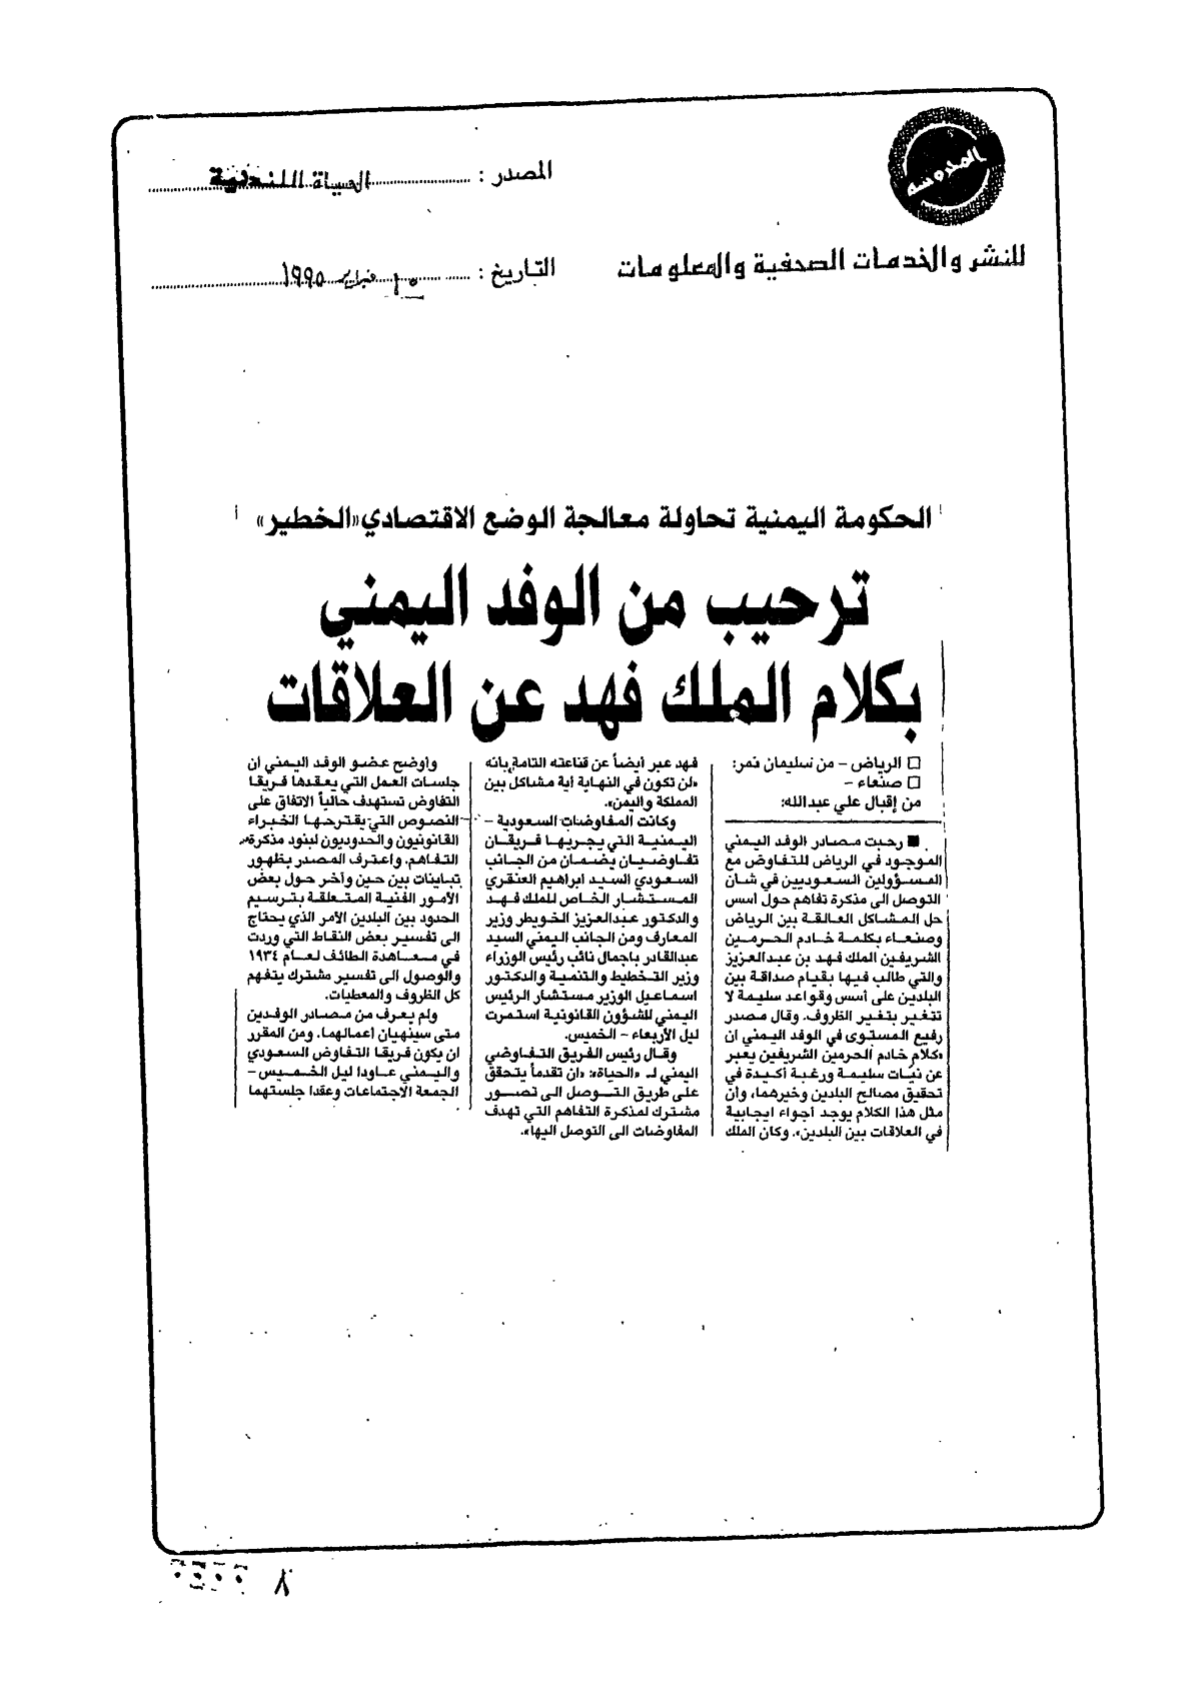 المحروسة
المصدر : الحياة اللندنية
للنشر والخدمات الصحفية والمعلومات
التاريخ : فبراير ١٩٩٥
الحكومة اليمنية تحاولة معالجة الوضع الاقتصادي «الخطير»
ترحيب من الوفد اليمني
بكلام الملك فهد عن العلاقات
□ الرياض – من سليمان نمر:
□ صنعاء –
من إقبال علي عبدالله:
■ رحبت مصادر الوفد اليمني
الموجود في الرياض للتفاوض مع
المسؤولين السعوديين في شان
التوصل الى مذكرة تفاهم حول أسس
حل المشاكل العالقة بين الرياض
وصنعاء بكلمة خادم الحرمين
الشريفين الملك فهد بن عبدالعزيز
والتي طالب فيها بقيام صداقة بين
البلدين على أسس وقواعد سليمة لا
تتغير بتغير الظروف. وقال مصدر
رفيع المستوى في الوفد اليمني ان
«كلام خادم الحرمين الشريفين يعبر
عن نيات سليمة ورغبة أكيدة في
تحقيق مصالح البلدين وخيرهما، وأن
مثل هذا الكلام يوجد أجواء ايجابية
في العلاقات بين البلدين». وكان الملك
فهد عبر أيضاً عن قناعته التامة بانه
«لن تكون في النهاية أية مشاكل بين
المملكة واليمن».
وكانت المفاوضات السعودية –
اليمنية التي يجريها فريقان
تفاوضيان يضمان من الجانب
السعودي السيد ابراهيم العنقري
المستشار الخاص للملك فهد
والدكتور عبدالعزيز الخويطر وزير
المعارف ومن الجانب اليمني السيد
عبدالقادر باجمال نائب رئيس الوزراء
وزير التخطيط والتنمية والدكتور
اسماعيل الوزير مستشار الرئيس
اليمني للشؤون القانونية استمرت
ليل الأربعاء – الخميس.
وقال رئيس الفريق التفاوضي
اليمني لـ «الحياة»: «ان تقدماً يتحقق
على طريق التوصل الى تصور
مشترك لمذكرة التفاهم التي تهدف
المفاوضات الى التوصل اليها».
وأوضح عضو الوفد اليمني ان
جلسات العمل التي يعقدها فريقا
التفاوض تستهدف حالياً الاتفاق على
النصوص التي يقترحها الخبراء
القانونيون والحدوديون لبنود مذكرة
التفاهم. واعترف المصدر بظهور
تباينات بين حين وآخر حول بعض
الأمور الفنية المتعلقة بترسيم
الحدود بين البلدين الأمر الذي يحتاج
الى تفسير بعض النقاط التي وردت
في معاهدة الطائف لعام ١٩٣٤
والوصول الى تفسير مشترك يتفهم
كل الظروف والمعطيات.
ولم يعرف من مصادر الوفدين
متى سينهيان أعمالهما. ومن المقرر
ان يكون فريقا التفاوض السعودي
واليمني عاودا ليل الخميس –
الجمعة الاجتماعات وعقدا جلستهما